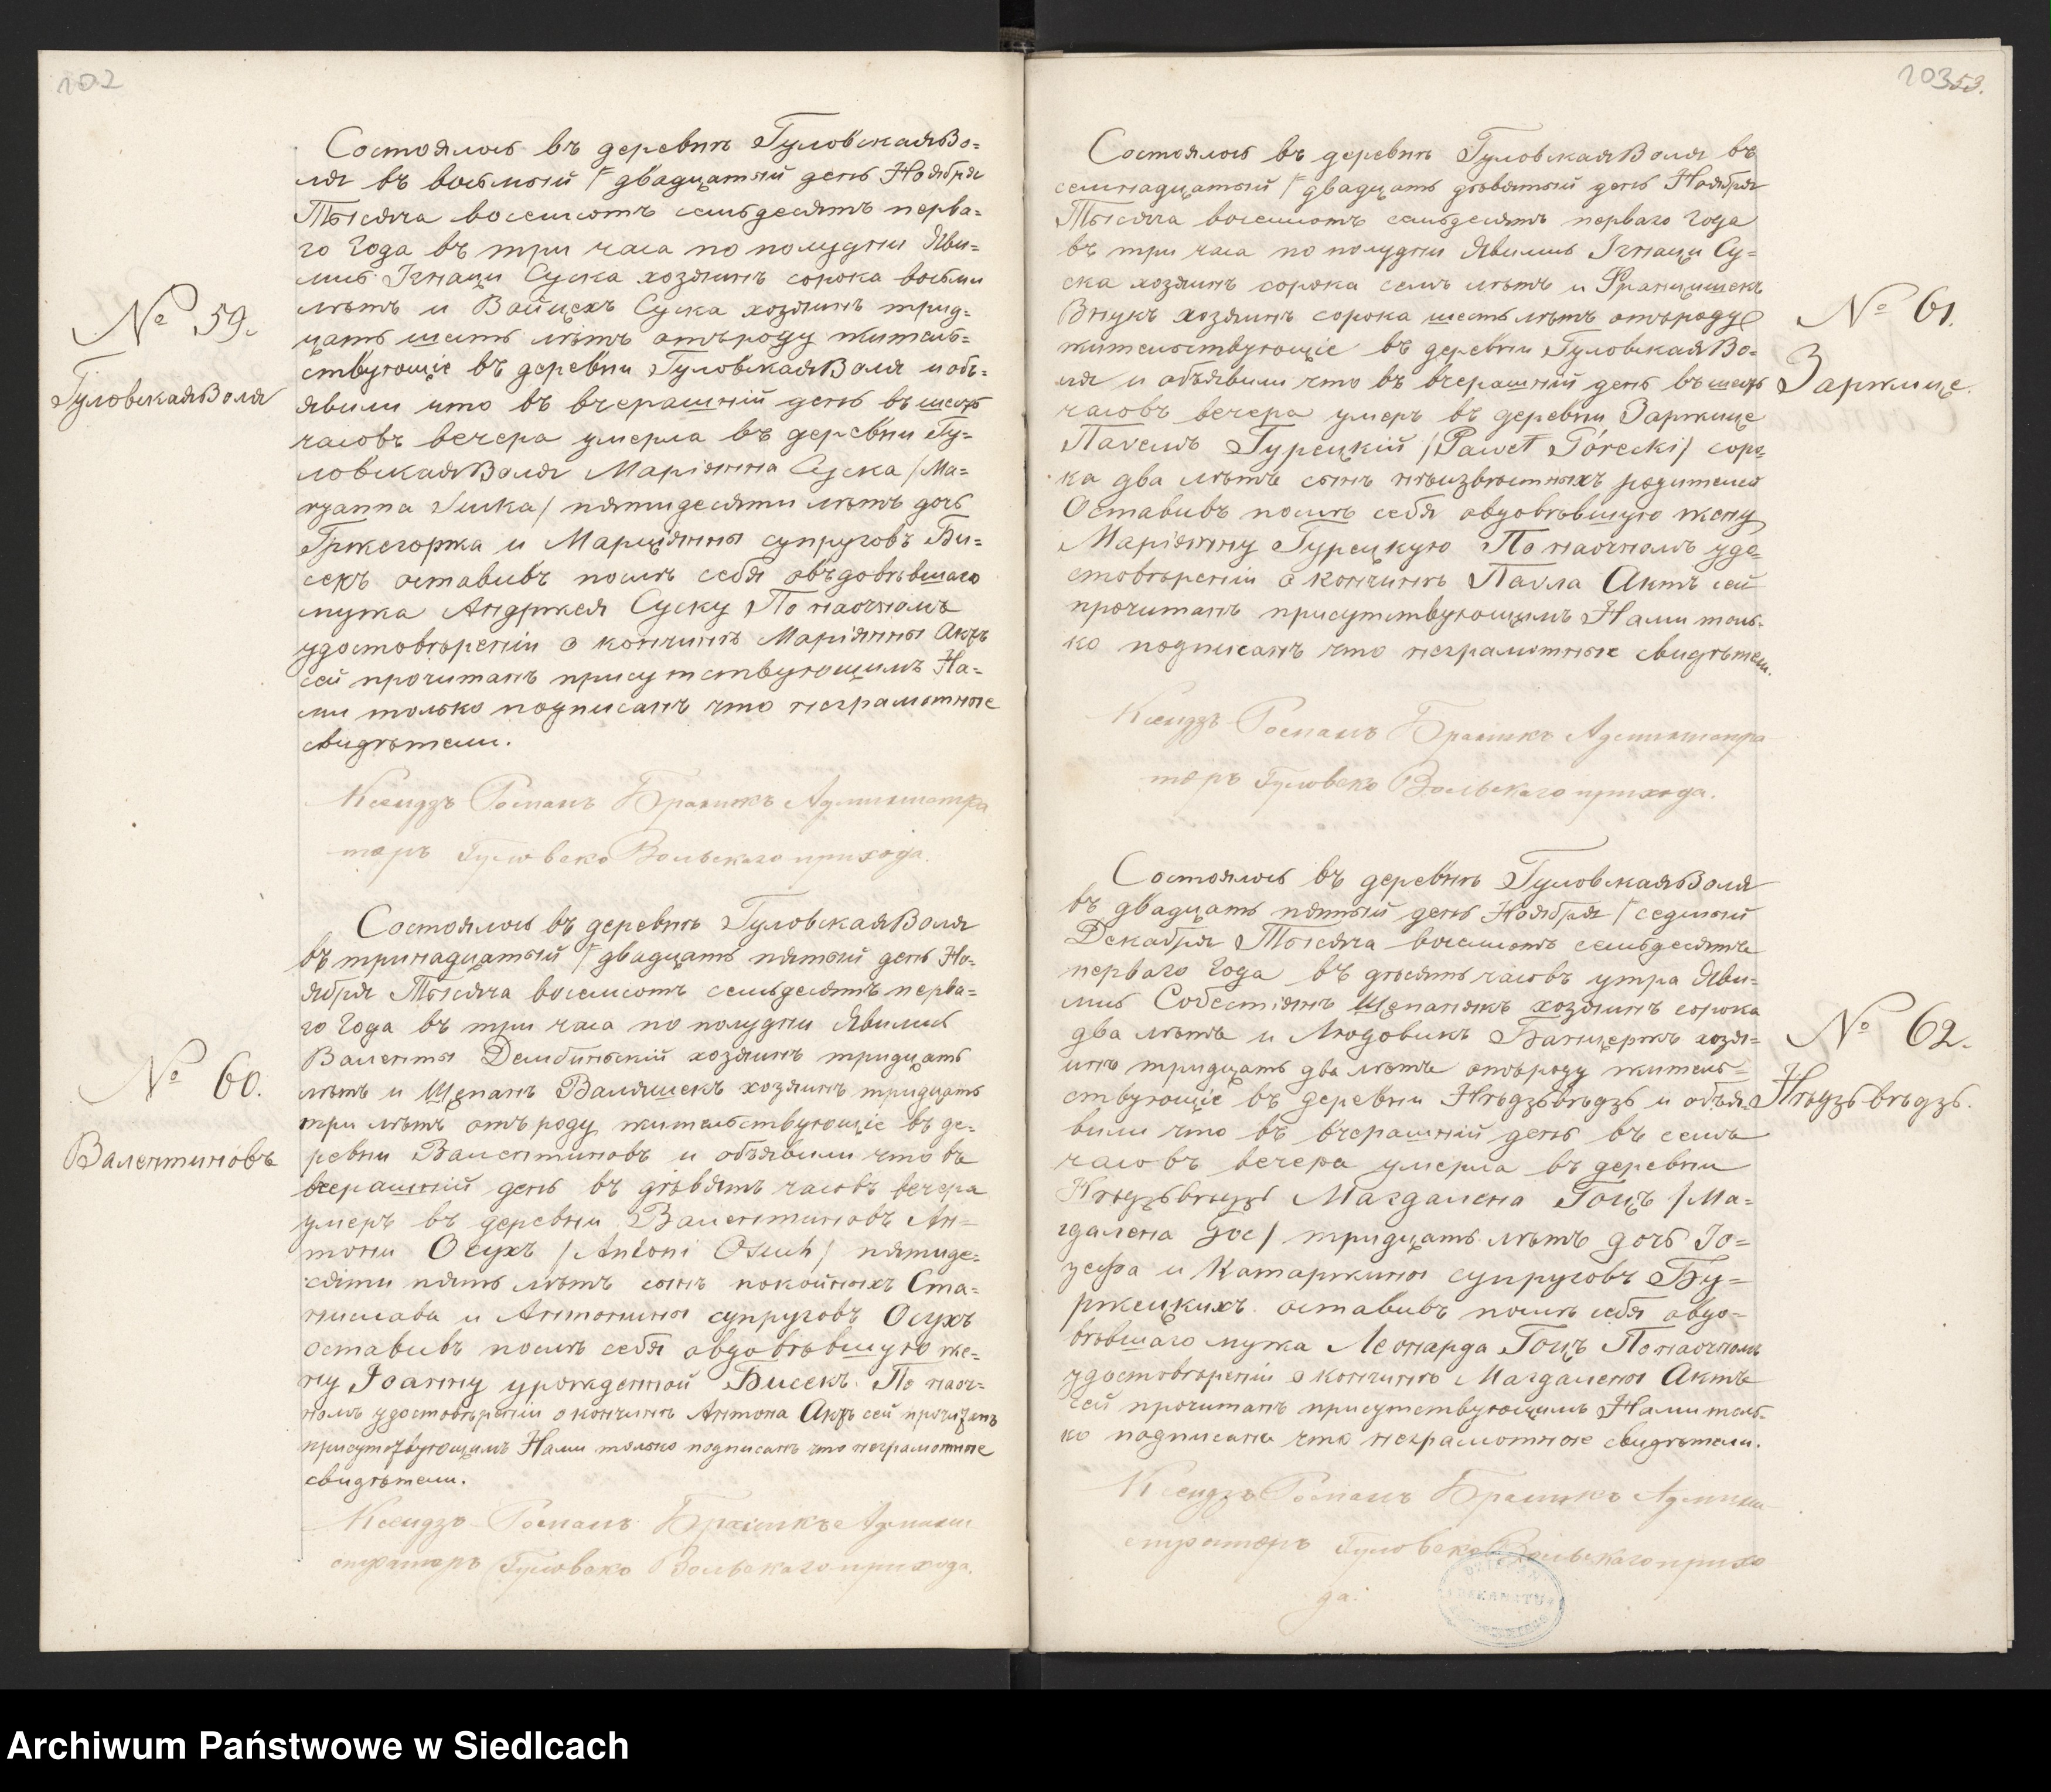 102
Состоялось въ деревнѣ ГуловскаяВо=
ля въ восьмый / двадцатый день Ноября
Тысяча восемсотъ семьдесятъ перва=
го Года въ три часа по полудни Яви=
лись Игнаци Суска хозяинъ сорока восьми
лѣтъ и Войцехъ Суска хозяинъ трид=
цать шесть лѣтъ отъроду житель=
ствующіе въ деревни ГуловскаяВоля иобъ=
явили что въ вчерашній день въ шесть
часовъ вечера умерла въ деревни Гу=
ловскаяВоля Маріянна Суска /Ma=
ryanna Suska/ пятидесяти лѣтъ дочь
Гржегоржа и Марціянны супруговъ Би=
секъ оставивъ послѣ себя овдовѣвшаго
мужа Андржея Суску По наочномъ
удостовѣреніи о кончинѣ Маріянны Актъ
сей прочитанъ присутствующимъ На=
ми только подписанъ что неграмотные
свидѣтели.
Ксендзъ Романъ Администра
торъ Гуловско Вольскаго прихода.
№ 59.
ГуловскаяВоля
Состоялось въ деревнѣ ГуловскаяВоля
въ тринадцатый / двадцать пятый день Но=
ября Тысяча восемсотъ семьдесятъ перва=
го Года въ три часа по полудни Явились
Валенты Дембиньскій хозяинъ тридцать
лѣтъ и Щепанъ Валяшекъ хозяинъ тридцать
три лѣтъ отъ роду жительствующіе въ де=
ревни Валентиновъ и объявили что въ
вчерашній день въ девять часовъ вечера
умеръ въ деревни Валентиновъ Ан=
тони Осухъ /Antoni Osuch/ пятиде=
сяти пять лѣтъ сынъ покойныхъ Ста=
нислава и Антонины супруговъ Осухъ
оставивъ послѣ себя овдовѣвшую же=
ну Іоанну урожденной Бисекъ. По наоч=
номъ удостовѣреніи о кончинѣ Антона Актъ сей прочитанъ
присутствующимъ Нами только подписанъ что неграмотные
свидѣтели.
Ксендзъ Романъ Админи
страторъ Гуловско Вольскаго прихода.
№ 60.
Валентиновъ
103 53.
Состоялось въ деревнѣ ГуловскаяВоля въ
семнадцатый / двадцать девятый день Ноября
Тысяча восемсотъ семьдесятъ перваго Года
въ три часа по полудни Явились Игнаци Су=
ска хозяинъ сорока семь лѣтъ и Францишекъ
Внукъ хозяинъ сорока шесть лѣтъ отъроду
жительствующіе въ деревни ГуловскаяВо=
ля и объявили что въ вчерашній день въ шесть
часовъ вечера умеръ въ деревни Заржице
Павелъ Гурецкій /Paweł Górecki/ соро=
ка два лѣтъ сынъ неизвѣстныхъ родителей
Оставивъ послѣ себя овдовѣвшую жену
Маріянну Гурецкую По наочномъ удо=
стовѣреніи о кончинѣ Павла Актъ сей
прочитанъ присутствующимъ Нами толь=
ко подписанъ что неграмотные свидѣтели.
Ксендзъ Романъ Администра
торъ Гуловско Вольскаго прихода.
№ 61.
Заржице.
Состоялось въ деревнѣ ГуловскаяВоля
въ двадцать пятый день Ноября / седмый
Декабря Тысяча восемсотъ семьдесятъ
перваго Года въ десять часовъ утра Яви=
лись Собестіянъ Щепанякъ хозяинъ сорока
два лѣтъ и Людовикъ Банцержъ хозя=
инъ тридцать два лѣтъ отъроду житель=
ствующіе въ деревни Нѣдзьвѣдзь и объя=
вили что въ вчерашній день въ семь
часовъ вечера умерла въ деревни
Нѣдзьвѣдзь Магдалена Гоцъ /Ма=
гдалена Goc/ тридцать лѣтъ дочь Іо=
зефа и Катаржины супруговъ Бу=
ржецкихъ оставивъ послѣ себя овдо=
вѣвшаго мужа Леонарда Гоцъ По наочномъ
удостовѣреніи о кончинѣ Магдалены Актъ
сей прочитанъ присутствующимъ Нами толь=
ко подписанъ что неграмотные свидѣтели.
Ксендзъ Романъ Админи
страторъ Гуловско Вольскаго прихо
да.
№ 62.
Нѣдзьвѣдзь.
Archiwum Państwowe w Siedlcach